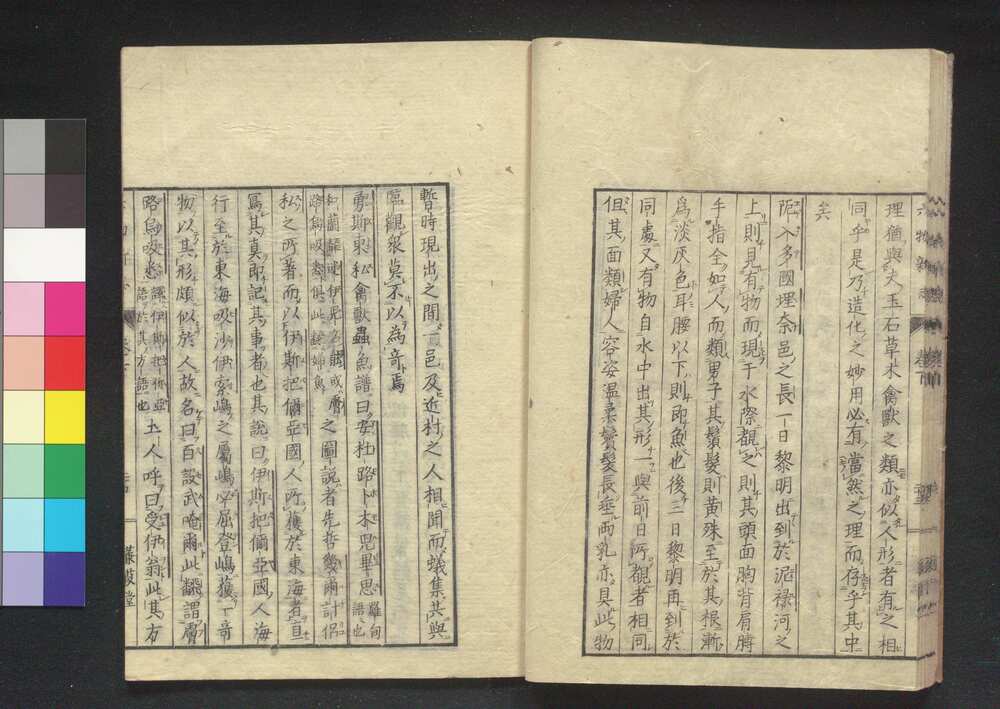 理猶與夫玉石草木禽獸之類亦似人形者有之相
同乎是乃造化之妙用必有當然之理而存乎其中
矣
阨入多國埋奈邑之長一日黎明出到於泥祿河之
上則見有物而現于水際觀之則其頭面胸背肩膊
手指全如人而類男子其鬚髮則黄殊至於其根漸
爲淡灰色耳腰以下則即魚也後三日黎明再到於
同處又有物自水中出其形一與前日所觀者相同
但其面類婦人容姿溫柔鬢髮長垂兩乳亦具此物
暫時現出之間一邑及近村之人相聞而蟻集共與
觀衆莫不以為奇焉
勇斯東私禽獸蟲魚譜曰安杜路卜木思畢思
之圖說者先哲幾爾計侶
私之所著而以伊斯把儞亞國人所獲於東海者直
寫其真即記其事者也其說曰伊斯把儞亞國人海
行至於東海吸沙伊索嶋之屬嶋必屈登嶋獲一奇
物以其形頗似於人故名曰百設武唵爾此翻謂
路烏吸悉 土人呼曰受伊翁此其方
六物新志 卷下
蒹葭堂